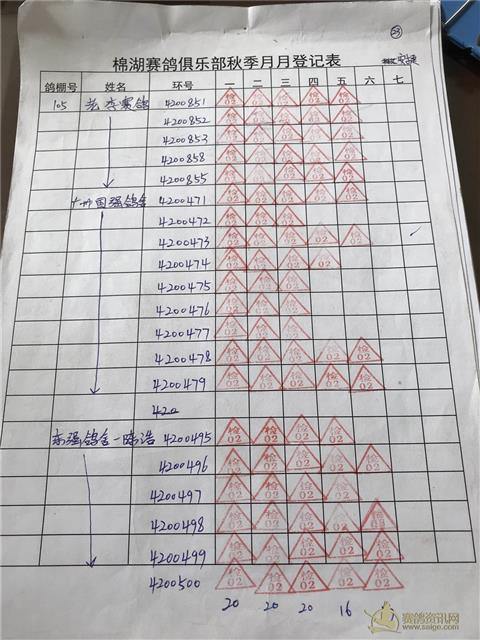 23
棉湖赛鸽俱乐部秋季月月登记表
鸽棚号 姓名 环号 一 二 三 四 五 六 七
105 4200851 检02 检02 检02 检02 检02
4200852 检02 检02 检02 检02 检02
4200853 检02 检02 检02 检02 检02
4200858 检02 检02 检02 检02 检02
4200855 检02 检02 检02 检02 检02
国强鸽舍 4200471 检02 检02 检02 检02 检02
4200472 检02 检02 检02
4200473 检02 检02 检02 检02 检02
4200474 检02 检02 检02 检02
4200475 检02 检02 检02
4200476 检02 检02 检02
4200477 检02 检02 检02
4200478 检02 检02 检02 检02 检02
4200479 检02 检02 检02 检02 检02
420
强鸽舍-陈浩 4200495 检02 检02 检02 检02
4200496 检02 检02 检02 检02 检02
4200497 检02 检02 检02 检02
4200498 检02 检02 检02 检02 检02
4200499 检02 检02 检02 检02 检02
4200500 检02 检02 检02 检02 检02
20 20 20 16
赛鸽资讯网
www.saige.com